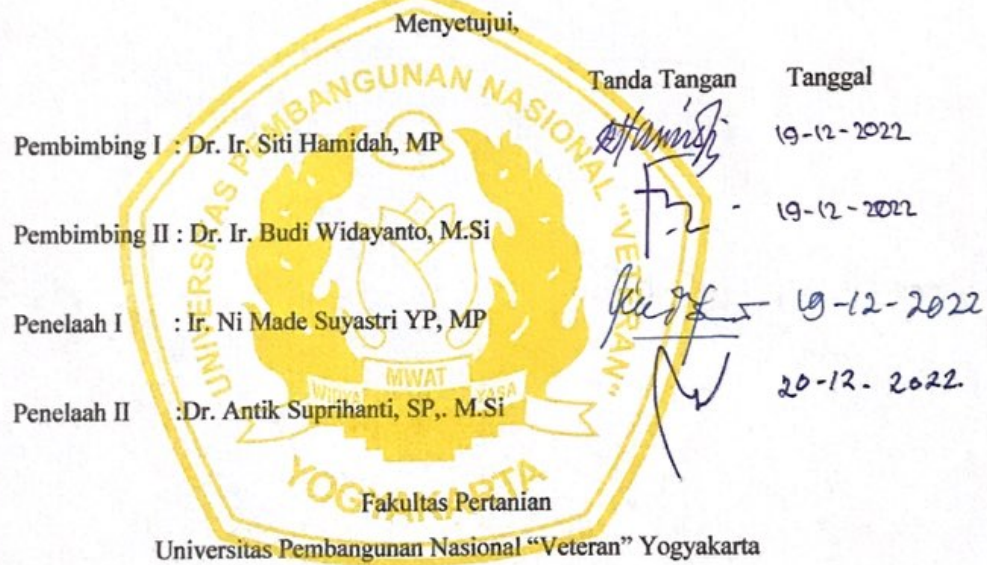 Menyetujui,
Tanda Tangan Tanggal
Pembimbing I : Dr. Ir. Siti Hamidah, MP 19-12-2022
Pembimbing II : Dr. Ir. Budi Widayanto, M.Si 19-12-2022
Penelaah I : Ir. Ni Made Suyastri YP, MP 19-12-2022
Penelaah II :Dr. Antik Suprihanti, SP,. M.Si 20-12-2022.
UNIVERSITAS PEMBANGUNAN NASIONAL "VETERAN"
WIDYA MWAT YASA
YOGYAKARTA
Fakultas Pertanian
Universitas Pembangunan Nasional “Veteran” Yogyakarta